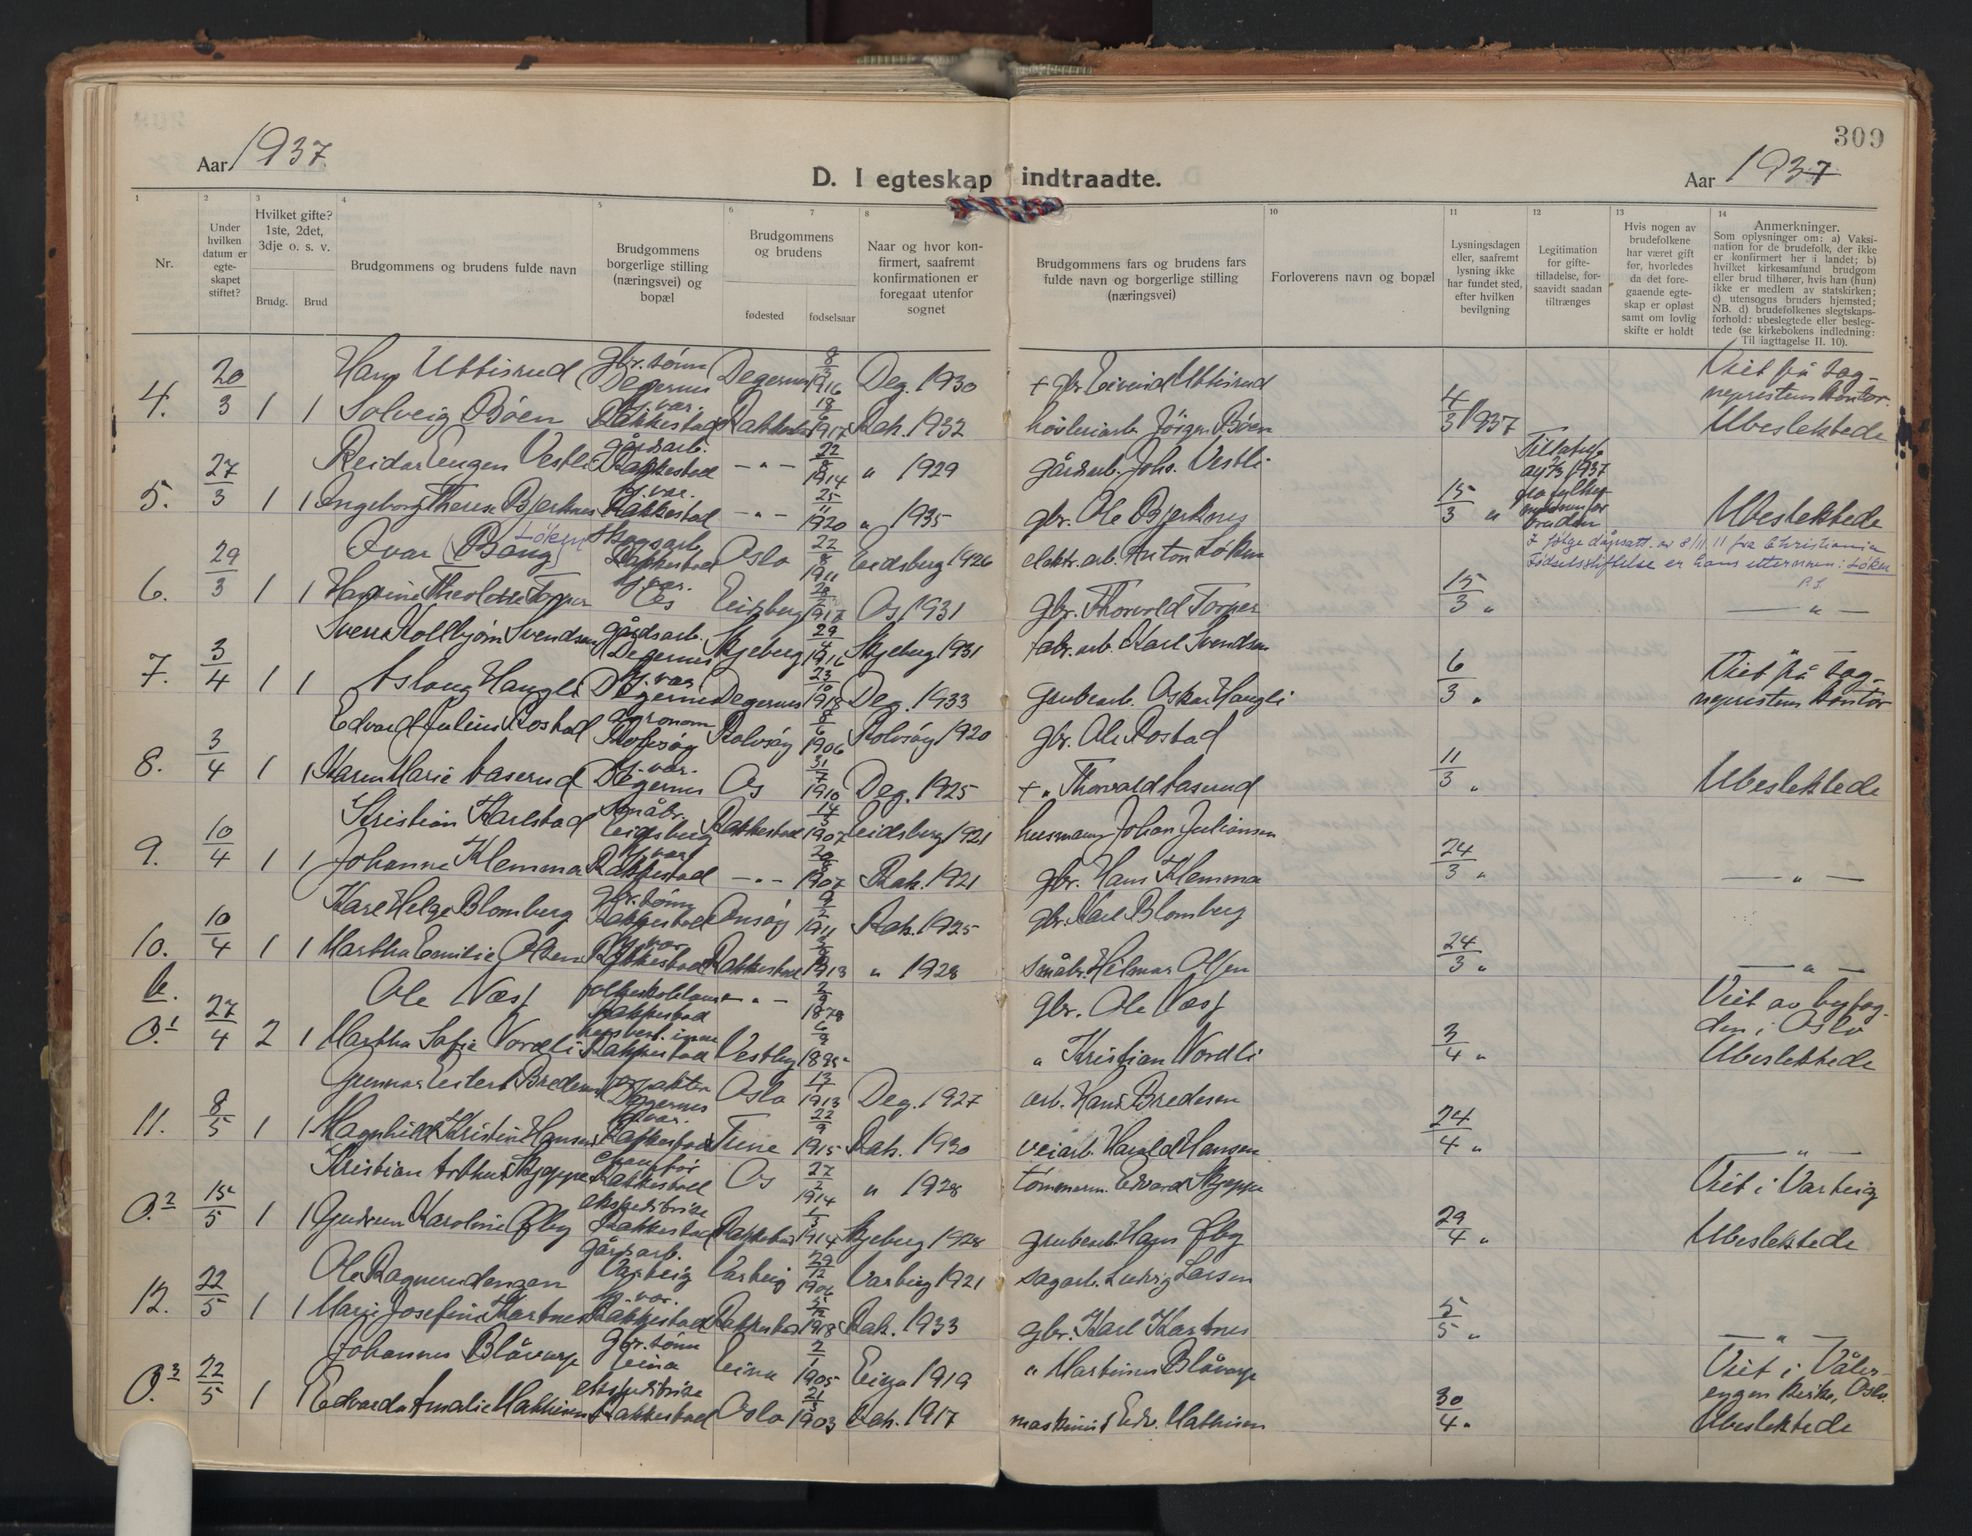 309
Aar 1937
D. I egteskap indtraadte.
Aar 1937
1 2 3 4 5 6 7 8 10 11 12 13 14
Nr.
Under hvilken datum er egteskapet stiftet?
Hvilket gifte? 1ste, 2det, 3dje o. s. v.
Brudg. Brud
Brudgommens og brudens fulde navn
Brudgommens borgerlige stilling (næringsvei) og bopæl
Brudgommens og brudens
fødested fødselsaar
Naar og hvor konfirmert, saafremt konfirmationen er foregaat utenfor sognet
Brudgommens fars og brudens fars fulde navn og borgerlige stilling (næringsvei)
Forloverens navn og bopæl
Lysningsdagen eller, saafremt lysning ikke har fundet sted, efter hvilken bevilgning
Legitimation for giftetilladelse, forsaavidt saadan tiltrænges
Hvis nogen av brudefolkene har været gift før, hvorledes da det foregaaende egteskap er opløst samt om lovlig skifte er holdt
Anmerkninger.
Som oplysninger om: a) Vaksination for de brudefolk, der ikke er konfirmert her i landet; b) hvilket kirkesamfund brudgom eller brud tilhører, hvis han (hun) ikke er medlem av statskirken; c) utensogns bruders hjemsted; NB. d) brudefolkenes slegtskapsforhold: ubeslegtede eller beslegtede (se kirkebokens indledning: Til iagttagelse II. 10).
Hans Ubbisrud gbr. sønn Degernes Degernes 8/3 1916 Deg. 1930 + gbr. Eivind Ubbisrud Viet på sog-
4. 20/3 1 1 Solveig Bøen hj. vær. Rakkestad Rakkestad 18/6 1917 Rak. 1932 høvleriarb. Jörgen Bøen 4/3 1937 neprestens kontor. Ubeslektede
Reidar Engen Vestli gårdsarb. Rakkestad — „ — 22/8 1914 „ 1929 gårdsarb. Johs. Vestli
5. 27/3 1 1 Ingeborg Therese Bjerknes hj. vær. Rakkestad — „ — 25/11 1920 „ 1935 gbr. Ole Bjerknes 15/3 „ 1937 fra fylkesmannen for bruden Ubeslektede
Ivar (Bang) Løken Skogsarb. Rakkestad Oslo 22/8 1911 Eidsberg 1926 elektr. arb. Anton Løken I følge dåpsatt. av 8/11 11 fra Christiania Fødselsstiftelse er hans etternavn: Løken
6. 29/3 1 1 Theoline Torper hj. vær. Os Eidsberg 1917 Os 1931 gbr. Thorvold Torper 15/3 „ — „ —
Sverre Kolbjørn Svendsen gårdsarb. Degernes Skjeberg 29/4 1916 Skjeberg 1931 fabr. arb. Karl Svendsen
7. 3/4 1 1 Aslaug Haugli hj. vær. Degernes Degernes 23/10 1918 Deg. 1933 grubearb. Oskar Haugli 6/3 „ Viet på sogneprestens kontor
Edvard Julius Rostad agronom Rolvsøy Rolvsøy 8/6 1906 Rolvsøy 1920 gbr. Ole Rostad
8. 3/4 1 1 Karen Marie Aaserud hj. vær. Degernes Os 31/7 1910 Deg. 1925 + „ Thorvald Aaserud 11/3 „ Ubeslektede
Kristian Karlstad småbr. Eidsberg Rakkestad 14/3 1907 Eidsberg 1921 husmann Johan Juliansen
9. 10/4 1 1 Johanne Klemma hj. vær. Rakkestad — „ — 1907 Rak. 1921 gbr. Hans Klemma 24/3 „ — „ —
Kåre Helge Blomberg gbr. sønn Rakkestad Onsøy 9/2 1911 Rak. 1925 gbr. Karl Blomberg
10. 10/4 1 1 Martha Emilie Olsen hj. vær. Rakkestad Rakkestad 1913 „ 1928 småbr. Hilmar Olsen 24/3 „ — „ —
Ole Næss folkeskolelærer Rakkestad — „ — 1878 gbr. Ole Næss Viet av byfog-
O.1 27/4 2 1 Martha Sofie Nordli Rakkestad Vestby „ Kristian Nordli 3/4 „ den i Oslo Ubeslektede
Gunnar Bredesen Degernes Oslo 13/1 1913 Deg. 1927 arb. Hans Bredesen
11. 8/5 1 1 Magnhild Kristine Hansen hj. vær. Rakkestad Tune 22/9 1915 Rak. 1930 veiarb. Harald Hansen 24/4 „ — „ —
Kristian Arthur Skjeppe chauffør Rakkestad Os 27/2 1914 „ 1928 tømmerm. Edvard Skjeppe Viet i Varteig
O.2 15/5 1 1 Gudrun Karoline Øby ekspeditrise Rakkestad Rakkestad 1/3 1914 Skjeberg 1928 grubearb. Hans Øby 29/4 „ Ubeslektede
Ole Ragnar gårdsarb. Varteig Varteig 29/12 1906 Varteig 1921 sagarb. Ludvig Larsen
12. 22/5 1 1 Marie Josefine Kartnes hj. vær. Rakkestad Rakkestad 1918 Rak. 1933 gbr. Karl Kartnes 5/5 „ — „ —
Johannes Blåvarp gbr. sønn Eina Eina 2/1 1905 Eina 1919 „ Martinus Blåvarp Viet i Våler-
O.3 22/5 1 1 Edvarda Amalie Mathisen ekspeditrise Rakkestad Oslo 21/3 1903 Rak. 1917 maskinist Edv. Mathisen 30/4 „ engen kirke, Oslo. Ubeslektede